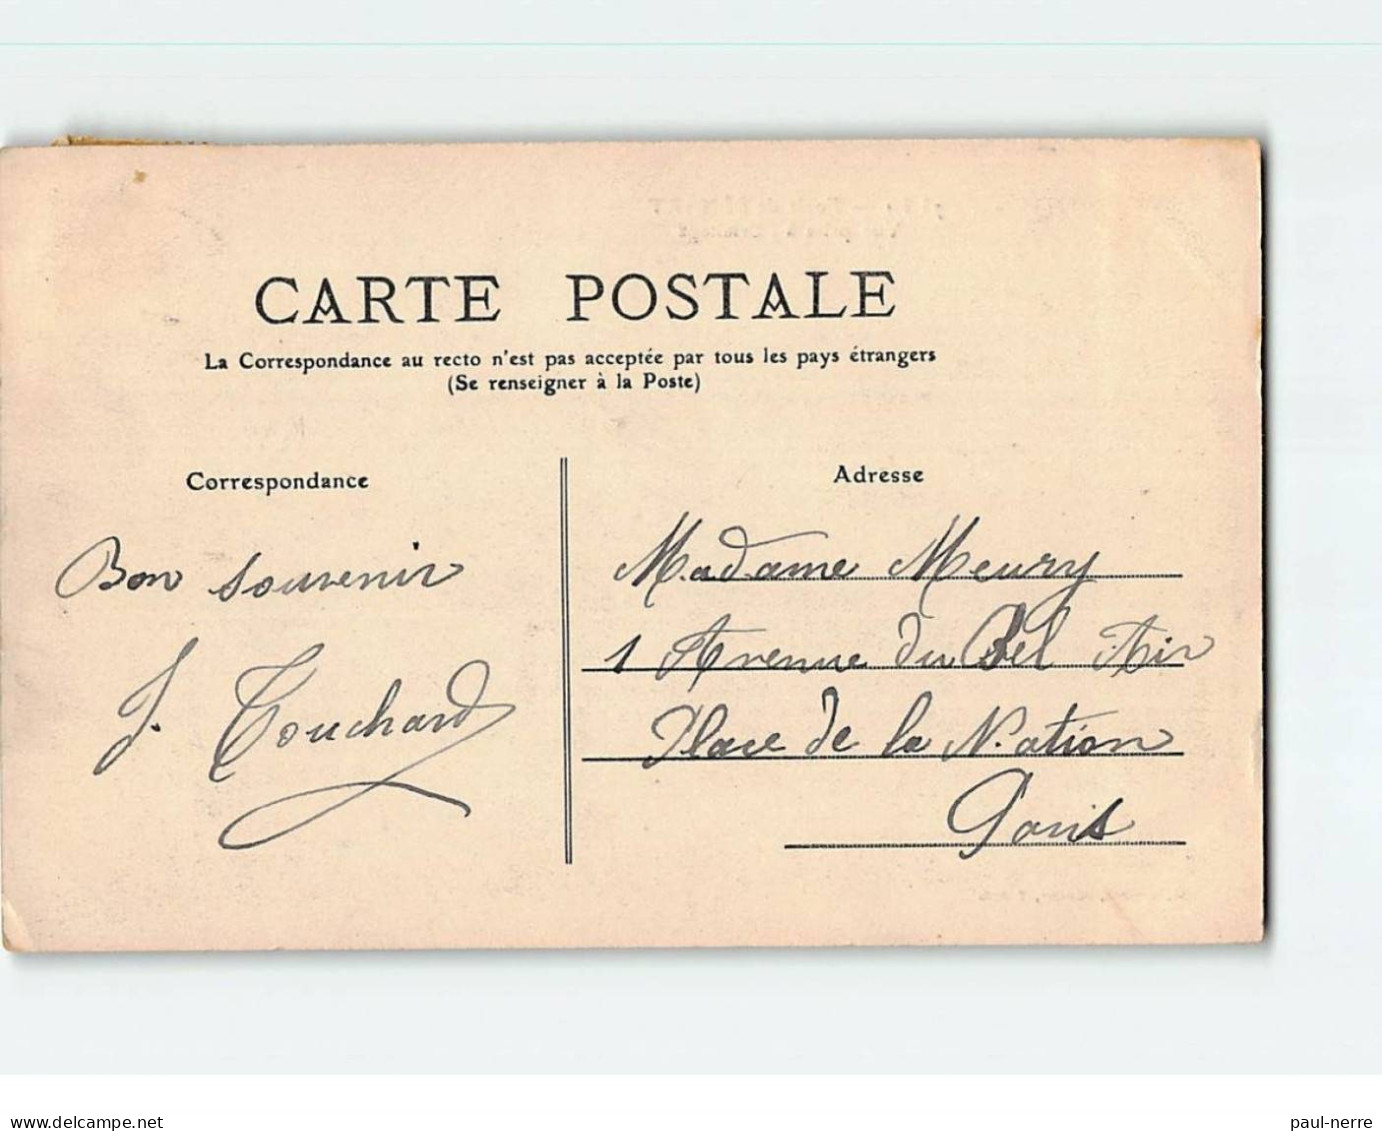 CARTE POSTALE
La Correspondance au recto n'est pas acceptée par tous les pays étrangers
(Se renseigner à la Poste)
Correspondance
Bon souvenir
J. Touchard
Adresse
Madame Meury
1 Avenue du Bel Air
Place de la Nation
Paris
www.delcampe.net
paul-nerre